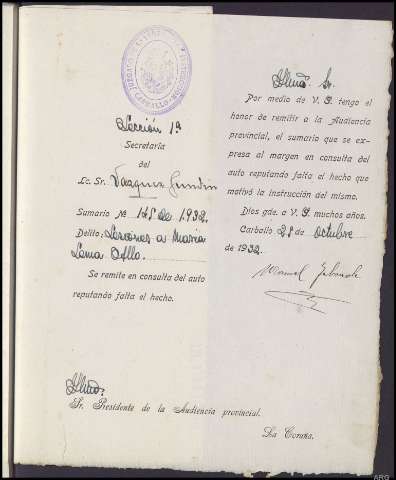 Sección 1ª
Secretaría
del
Lc. Sr. Vazquez Gundin
Sumario Nº 145 de 1.932.
Delito; Lesiones a Maria
Lema
Se remite en consulta del auto
reputando falta el hecho.
Iltmo. Sr.
Por medio de V. I. tengo el
honor de remitir a la Audiencia
provincial, el sumario que se ex-
presa al margen en consulta del
auto reputando falta el hecho que
motivó la instrucción del mismo.
Dios gde. a V. I. muchos años.
Carballo 28 de octubre
de 1932.
Manuel
Iltmo:
Sr. Presidente de la Audiencia provincial.
La Coruña.
ARG